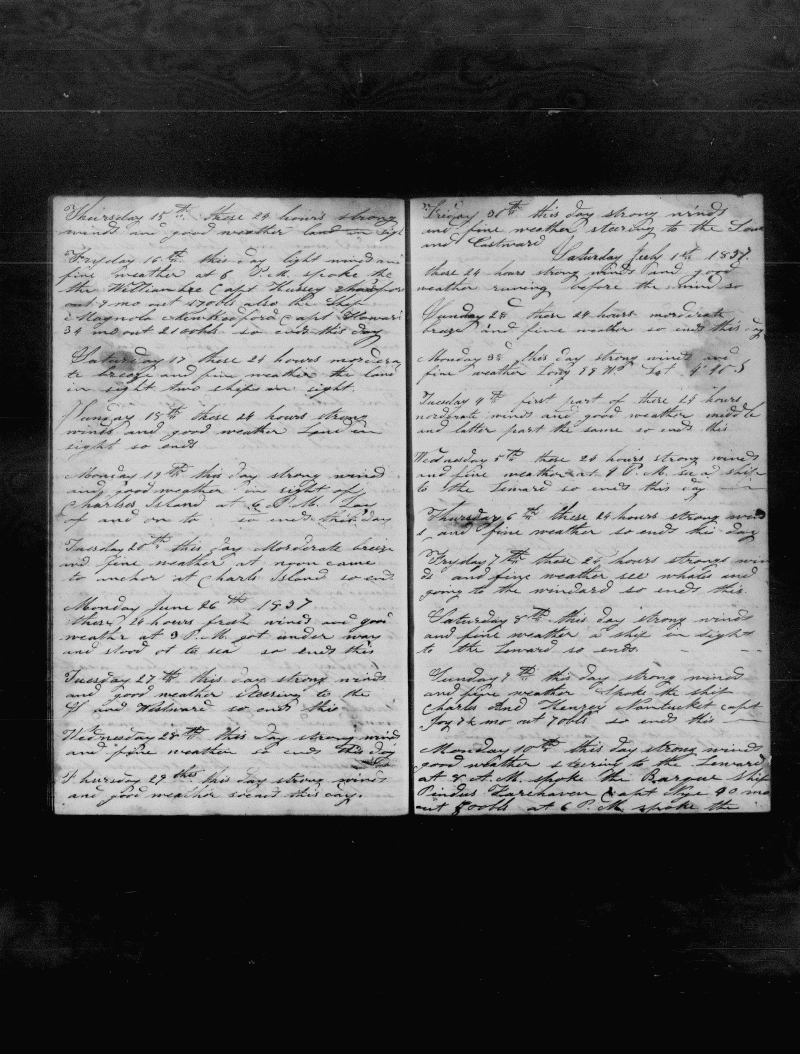 Thursday 15th these 24 hours strong
winds and good weather land in sigt
Fryday 16th this day light winds and
fine weather at 6 P.M. spoke the
the William Lee Capt Hussey
out 9 mo out 1700bls also the Ship
Magnola Newbedford Capt Howard
34 mo out 2100bls so ends this day
Saturday 17 these 24 hours mordera
te breeze and fine weather the land
in sight two ships in sight.
Sunday 18th these 24 hours strong
winds and good weather Land in
sight so ends
Monday 19th this day strong winds
and good weather in sight of
Charles Island at 6 P.M. Lay
of and on to so ends this day
Tuesday 20th this day Morderate breeze
and fine weather at noon came
to anchor at Charls Island so ends
Monday June 26th 1837
these 24 hours fresh winds and good
weather at 3 P.M. got under way
and stood of to sea so ends this
Tuesday 27th this day strong winds
and good weather steering to the
and Westward so ends this
Wednesday 28th this day strong winds
and fine weather so ends this day
Thursday 29th this day strong winds
and good weather so ends this day.
Friday 30th this day strong winds
and fine weather steering to the Sou
and Eastward
Saturday July 1st 1837.
these 24 hours strong winds and good
weather runing before the wind so
Sunday 2d these 24 hours morderate
breeze and fine weather so ends this day
Monday 3d this day strong winds and
fine weather Long 99 Lat 4 S
Tuesday 4th first part of these 24 hours
morderate winds and good weather middle
and latter part the same so ends this
Wednesday 5th these 24 hours strong winds
and fine weather at 4 P.M. see a ship
to the Leward so ends this day
Thursday 6th these 24 hours strong wind
s, and fine weather so ends this day
Fryday 7th these 24 hours strong win
ds and fine weather see whales and
going to the windard so ends this
Saturday 8th this day strong winds
and fine weather a ship in sight
to the Leward so ends
Sunday 9th this day strong winds
and fine weather Spoke the ship
Charles and Henrey Nantucket capt
Joy 7 mo out 70bls so ends this
Monday 10th this day strong winds
good weather steering to the Leward
at 8 A.M. spoke the Barque Ship
Pindus Farehaven Capt Nye 40 mo
out 800bls at 6 P.M. spoke the